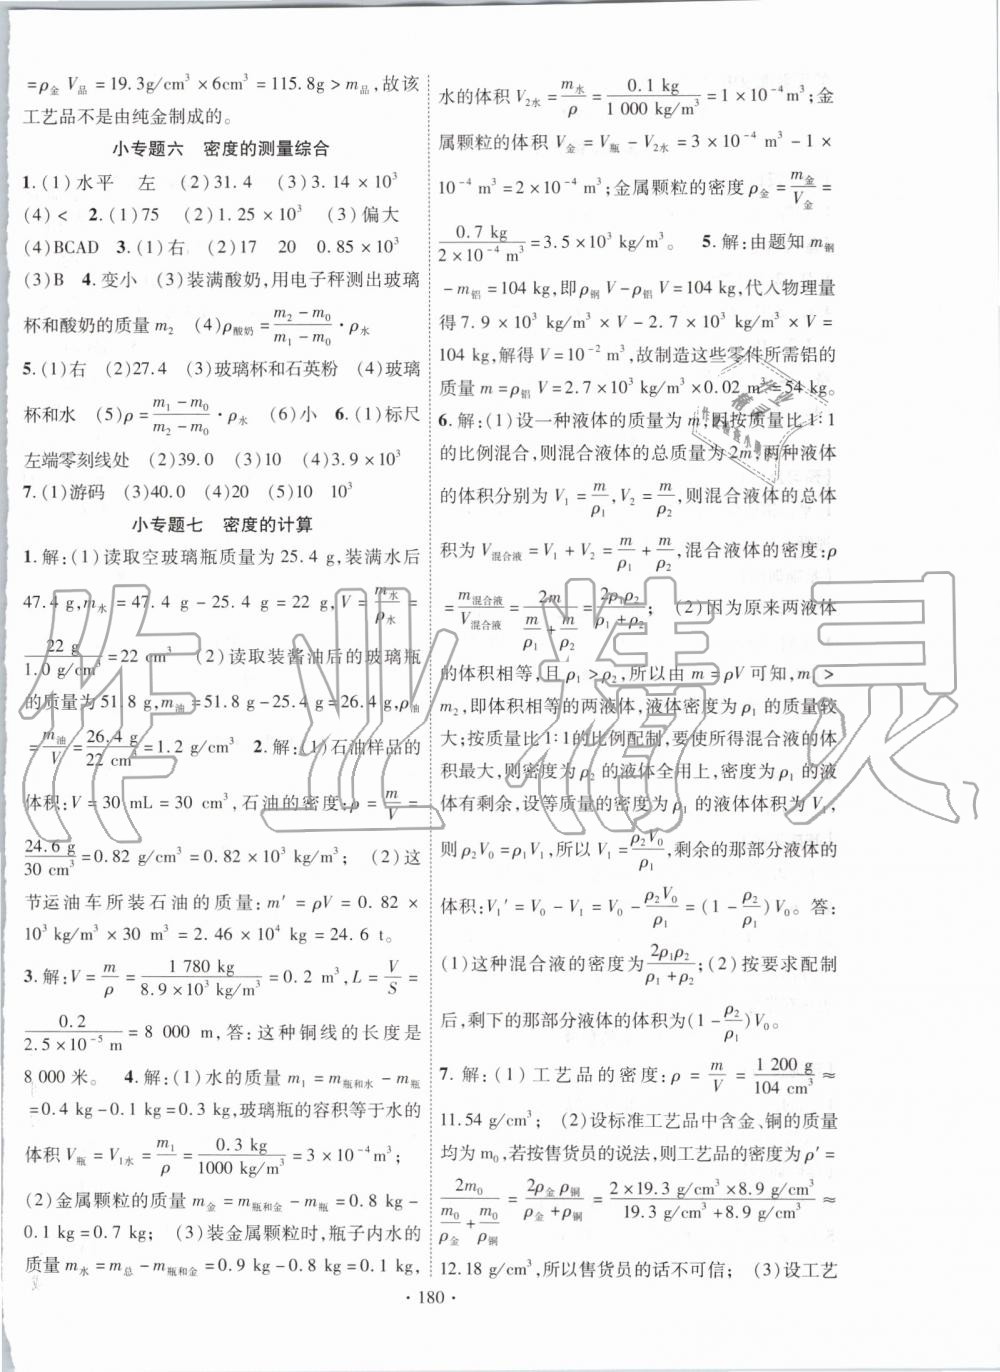 =ρ金 V品=19.3g/cm³×6cm³=115.8g>m品,故该
工艺品不是由纯金制成的。
小专题六 密度的测量综合
1.(1)水平 左 (2)31.4 (3)3.14×10³
(4)< 2.(1)75 (2)1.25×10³ (3)偏大
(4)BCAD 3.(1)右 (2)17 20 0.85×10³
(3)B 4.变小 (3)装满酸奶,用电子秤测出玻璃
杯和酸奶的质量 m₂ (4)ρ酸奶=(m₂-m₀)/(m₁-m₀)·ρ水
5.(1)右 (2)27.4 (3)玻璃杯和石英粉 (4)玻璃
杯和水 (5)ρ=(m₁-m₀)/(m₂-m₀)·ρ水 (6)小 6.(1)标尺
左端零刻线处 (2)39.0 (3)30 (4)1.3×10³
7.(1)游码 (3)40.0 (4)20 (5)10 10³
小专题七 密度的计算
1.解:(1)读取空玻璃瓶质量为25.4 g,装满水后
47.4 g,m水=47.4 g-25.4 g=22 g,V=m水/ρ水=
22 g/1.0 g/cm³=22 cm³ (2)读取装酱油后的玻璃瓶
的质量为51.8 g,m油=51.8 g-25.4 g=26.4 g,ρ油
=m油/V=26.4 g/22 cm³=1.2 g/cm³ 2.解:(1)石油样品的
体积:V=30 mL=30 cm³,石油的密度:ρ=m/V=
24.6 g/30 cm³=0.82 g/cm³=0.82×10³ kg/m³; (2)这
节运油车所装石油的质量:m′=ρV=0.82×
10³ kg/m³×30 m³=2.46×10⁴ kg=24.6 t。
3.解:V=m/ρ=1 780 kg/8.9×10³ kg/m³=0.2 m³,L=V/S=
0.2/2.5×10⁻⁵ m=8 000 m,答:这种铜线的长度是
8 000米。 4.解:(1)水的质量 m₁=m瓶和水-m瓶
=0.4 kg-0.1 kg=0.3 kg,玻璃瓶的容积等于水的
体积 V瓶=V₁水=m₁/ρ=0.3 kg/1000 kg/m³=3×10⁻⁴m³;
(2)金属颗粒的质量 m金=m瓶和金-m瓶=0.8 kg-
0.1 kg=0.7 kg; (3)装金属颗粒时,瓶子内水的
质量 m水=m总-m瓶和金=0.9 kg-0.8 kg=0.1 kg,
水的体积 V₂水=m水/ρ=0.1 kg/1 000 kg/m³=1×10⁻⁴m³;金
属颗粒的体积 V金=V瓶-V₂水=3×10⁻⁴ m³-1×
10⁻⁴ m³=2×10⁻⁴ m³;金属颗粒的密度 ρ金=m金/V金=
0.7 kg/2×10⁻⁴ m³=3.5×10³ kg/m³。 5.解:由题知 m钢
-m铝=104 kg,即ρ钢 V-ρ铝 V=104 kg,代入物理量
得7.9×10³ kg/m³×V-2.7×10³ kg/m³×V=
104 kg,解得 V=10⁻² m³,故制造这些零件所需铝的
质量 m=ρ铝 V=2.7×10³ kg/m³×0.02 m³=54 kg。
6.解:(1)设一种液体的质量为 m,因按质量比1∶1
的比例混合,则混合液体的总质量为2m,两种液体
的体积分别为 V₁=m/ρ₁,V₂=m/ρ₂,则混合液体的总体
积为 V混合液=V₁+V₂=m/ρ₁+m/ρ₂,混合液体的密度:ρ
=m混合液/V混合液=2m/(m/ρ₁+m/ρ₂)=2ρ₁ρ₂/(ρ₁+ρ₂); (2)因为原来两液体
的体积相等,且 ρ₁>ρ₂,所以由 m=ρV 可知,m₁>
m₂,即体积相等的两液体,液体密度为 ρ₁ 的质量较
大;按质量比1∶1的比例配制,要使所得混合液的体
积最大,则密度为 ρ₂ 的液体全用上,密度为 ρ₁ 的液
体有剩余,设等质量的密度为 ρ₁ 的液体体积为 V₁,
则 ρ₂V₀=ρ₁V₁,所以 V₁=ρ₂V₀/ρ₁,剩余的那部分液体的
体积:V₁′=V₀-V₁=V₀-ρ₂V₀/ρ₁=(1-ρ₂/ρ₁)V₀。答:
(1)这种混合液的密度为2ρ₁ρ₂/(ρ₁+ρ₂);(2)按要求配制
后,剩下的那部分液体的体积为(1-ρ₂/ρ₁)V₀。
7.解:(1)工艺品的密度:ρ=m/V=1 200 g/104 cm³≈
11.54 g/cm³; (2)设标准工艺品中含金、铜的质量
均为 m₀,若按售货员的说法,则工艺品的密度为 ρ′=
2m₀/(m₀/ρ金+m₀/ρ铜)=2ρ金ρ铜/(ρ金+ρ铜)=2×19.3 g/cm³×8.9 g/cm³/19.3 g/cm³+8.9 g/cm³≈
12.18 g/cm³,所以售货员的话不可信; (3)设工艺
·180·
作业精灵